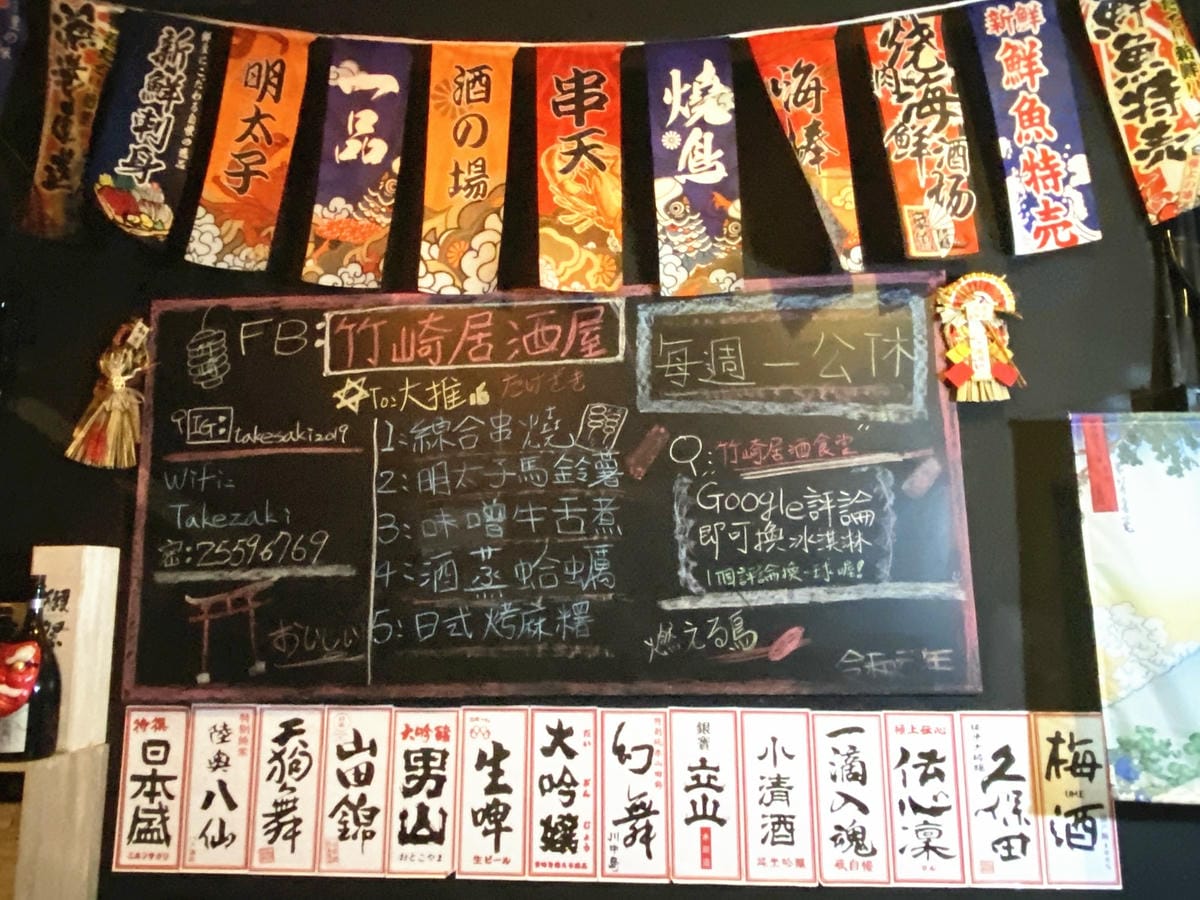 新鮮刺身
明太子
一品
酒の場
串天
焼鳥
焼肉
海鮮
酒场
新鮮
鮮魚特売
鮮魚特売
FB:竹崎居酒屋
每週一公休
To:大推
たけざき
IG:takesaki2019
Wifi:
Takezaki
密:25596769
おいしい
1:綜合串燒
2:明太子馬鈴薯
3:味噌牛舌煮
4:酒蒸蛤蠣
5:日式烤麻糬
竹崎居酒食堂
Google評論
即可換冰淇淋
1個評論換一球喔!!
燃える鳥
令和元年
特撰
日本盛
陸奥八仙
天狗舞
山田錦
大吟醸
男山
おとこやま
生啤
生ビール
大吟醸
だいぎんじょう
幻舞
川中島
銀嶺立山
小清酒
一滴入魂
極上伝心
伝心凛
りん
久保田
梅酒
UME